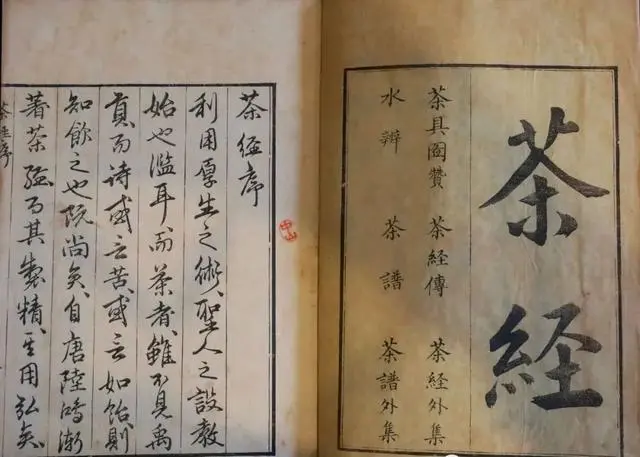 茶経
茶具圖贊 茶経傳 茶経外集
水辨 茶譜 茶譜外集
茶経序
利用厚生之術、聖人之設教
始也濫耳、而茶者、雖不見禹
貢、而詩或言苦、或言如飴、則
知飲之也既尚矣、自唐陸鴻漸
著茶経而其製精、其用弘矣、
茶経序
中山